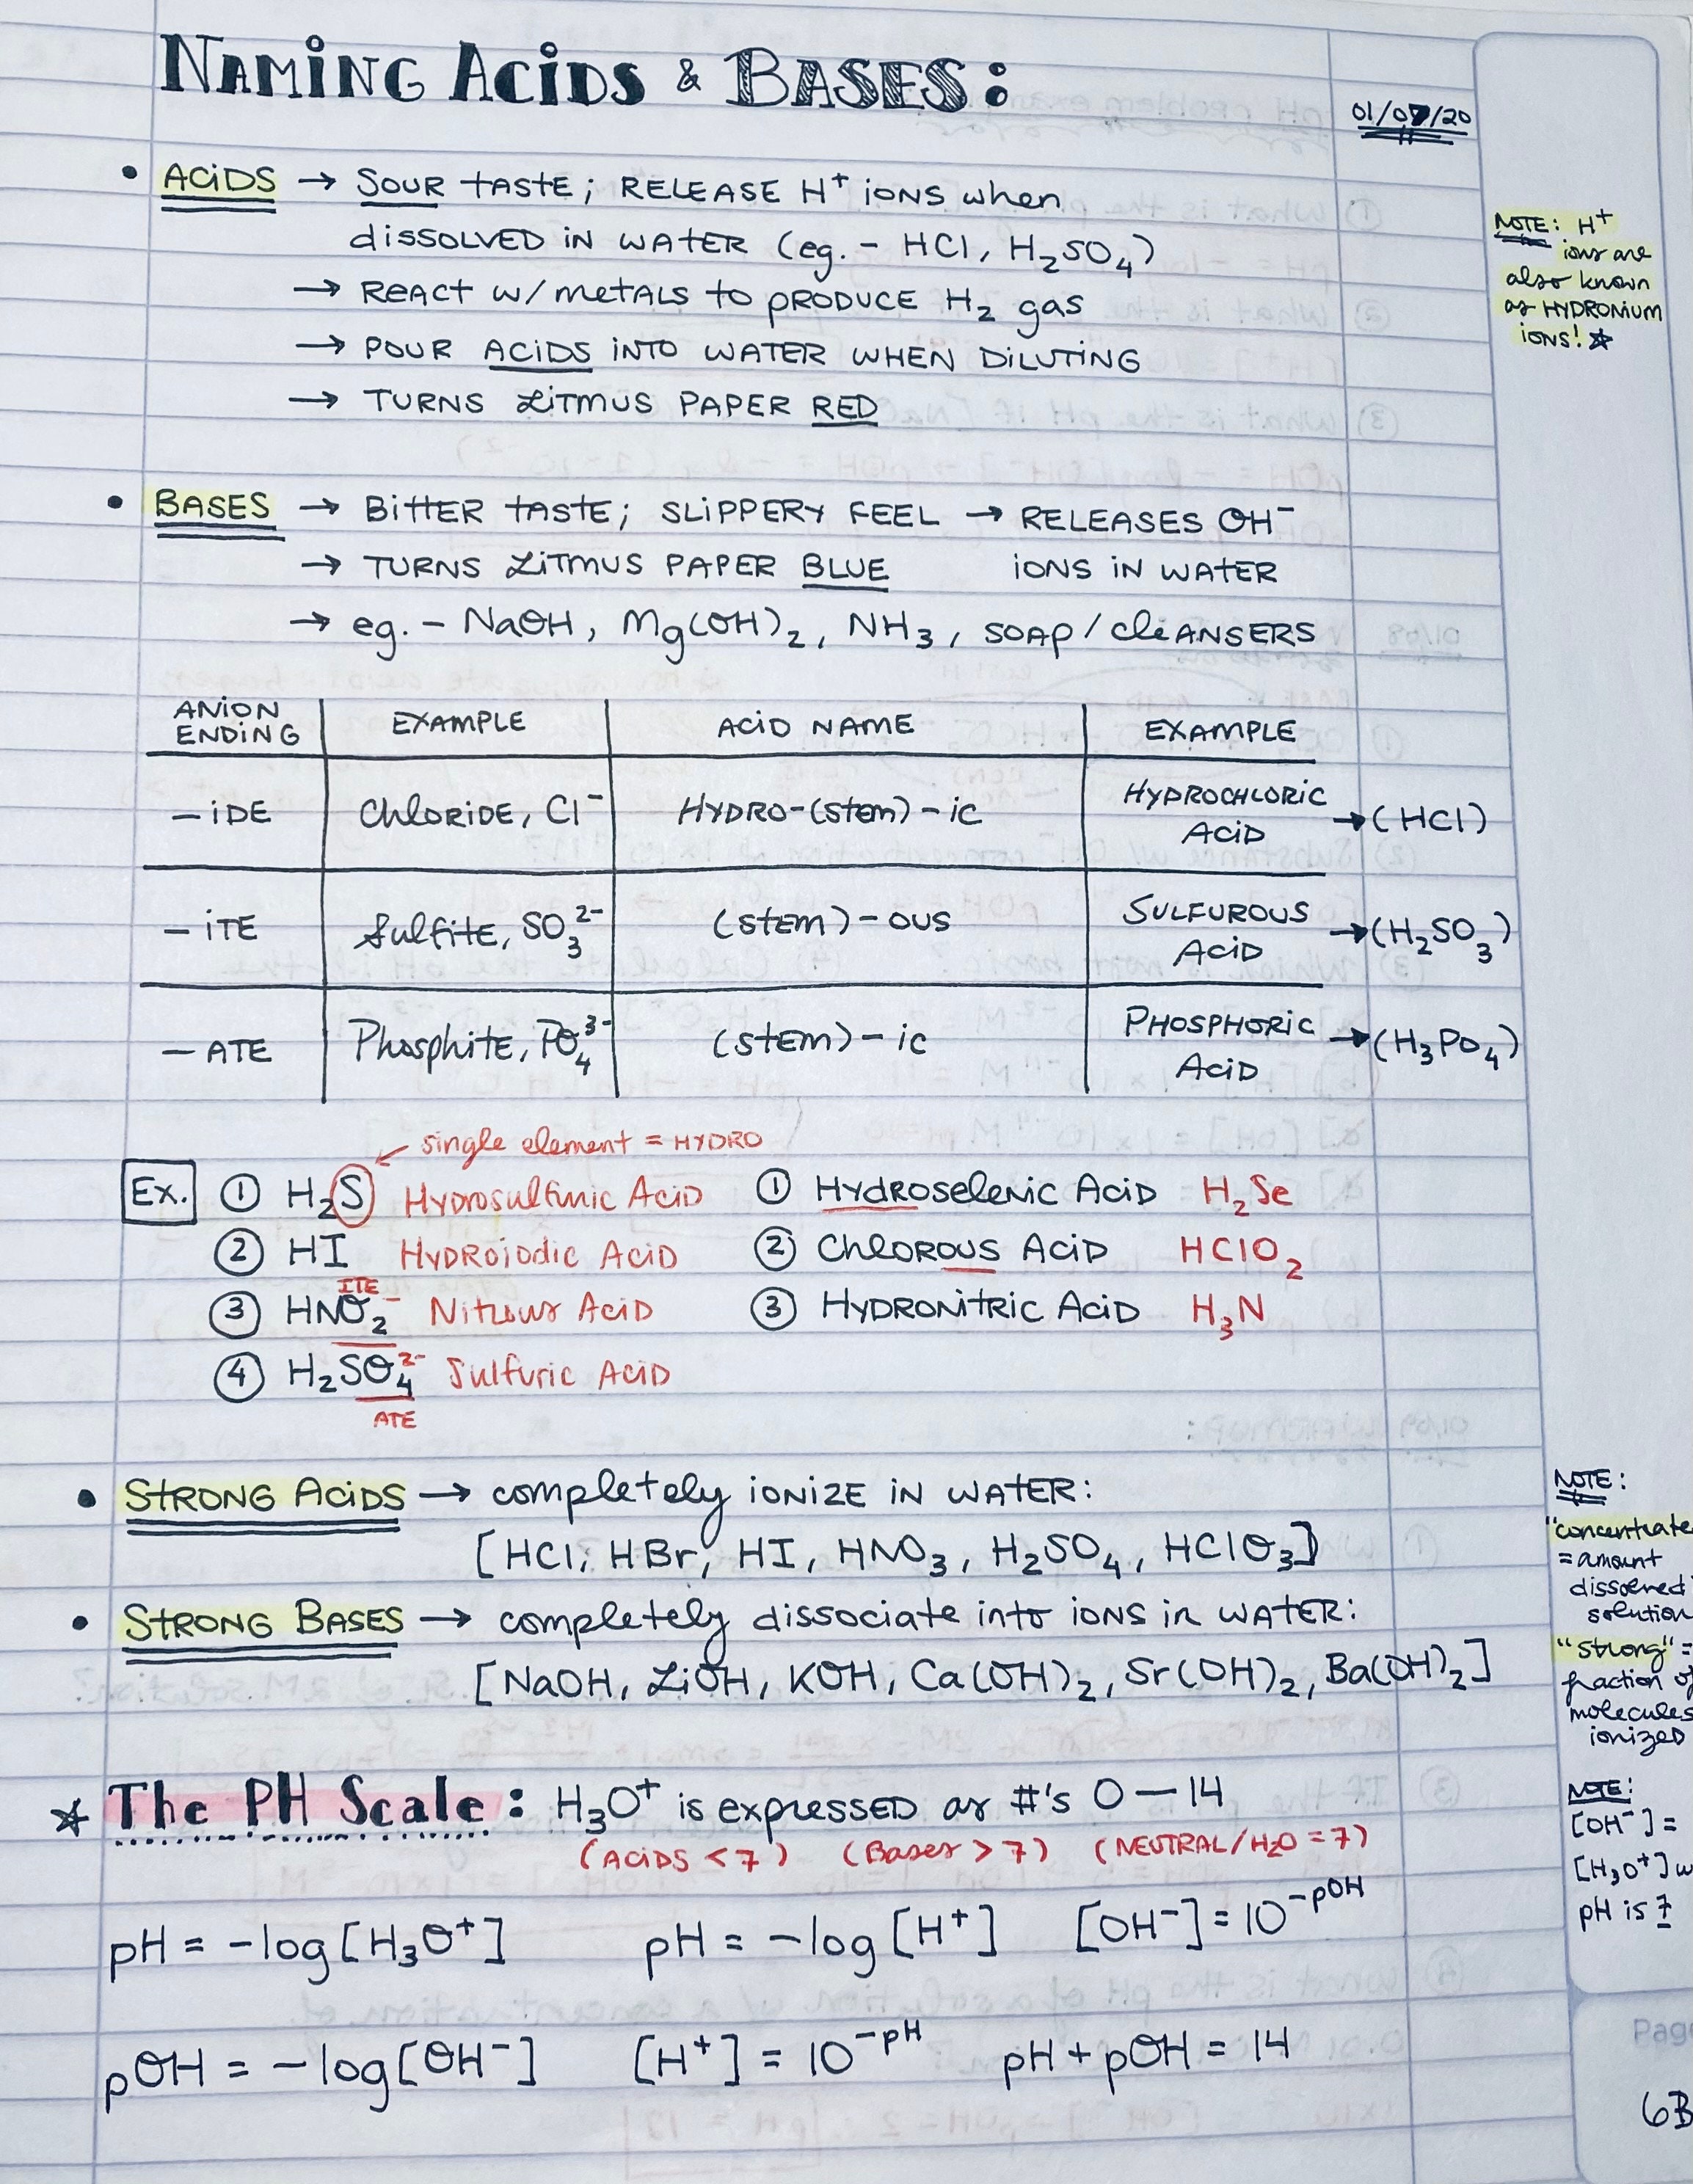 NAMING ACIDS & BASES:
01/07/20
• ACIDS → SOUR TASTE; RELEASE H⁺ IONS when
DISSOLVED IN WATER (eg. - HCl, H₂SO₄)
→ REACT W/ METALS TO PRODUCE H₂ gas
→ POUR ACIDS INTO WATER WHEN DILUTING
→ TURNS LITMUS PAPER RED
NOTE: H⁺
ions are
also known
as HYDRONIUM
IONS! ☆
• BASES → BITTER TASTE; SLIPPERY FEEL → RELEASES OH⁻
→ TURNS LITMUS PAPER BLUE IONS IN WATER
→ eg. - NaOH, Mg(OH)₂, NH₃, SOAP/CLEANSERS
ANION ENDING | EXAMPLE | ACID NAME | EXAMPLE
-IDE | CHLORIDE, Cl⁻ | HYDRO-(STEM)-ic | HYDROCHLORIC ACID → (HCl)
-ITE | Sulfite, SO₃²⁻ | (STEM)-OUS | SULFUROUS ACID → (H₂SO₃)
-ATE | Phosphite, PO₄³⁻ | (STEM)-ic | PHOSPHORIC ACID → (H₃PO₄)
single element = HYDRO
Ex. ① H₂S Hydrosulfuric Acid ① Hydroselenic Acid H₂Se
② HI Hydroiodic Acid ② Chlorous Acid HClO₂
ITE
③ HNO₂⁻ Nitrous Acid ③ HYDRONITRIC ACID H₃N
④ H₂SO₄²⁻ Sulfuric Acid
ATE
• STRONG ACIDS → completely IONIZE IN WATER:
[HCl, HBr, HI, HNO₃, H₂SO₄, HClO₃]
• STRONG BASES → completely dissociate into IONS in WATER:
[NaOH, LiOH, KOH, Ca(OH)₂, Sr(OH)₂, Ba(OH)₂]
NOTE:
"concentrate
= amount
dissolved
solution
"strong" =
fraction of
molecules
ionized
☆ The PH Scale: H₃O⁺ is expressed as #'s 0 — 14
(ACIDS < 7) (Bases > 7) (NEUTRAL/H₂O = 7)
NOTE:
[OH⁻] =
[H₃O⁺] w
pH is 7
pH = -log[H₃O⁺] pH = -log[H⁺] [OH⁻] = 10⁻ᵖᴼᴴ
pOH = -log[OH⁻] [H⁺] = 10⁻ᵖᴴ pH + pOH = 14
Pag
6B